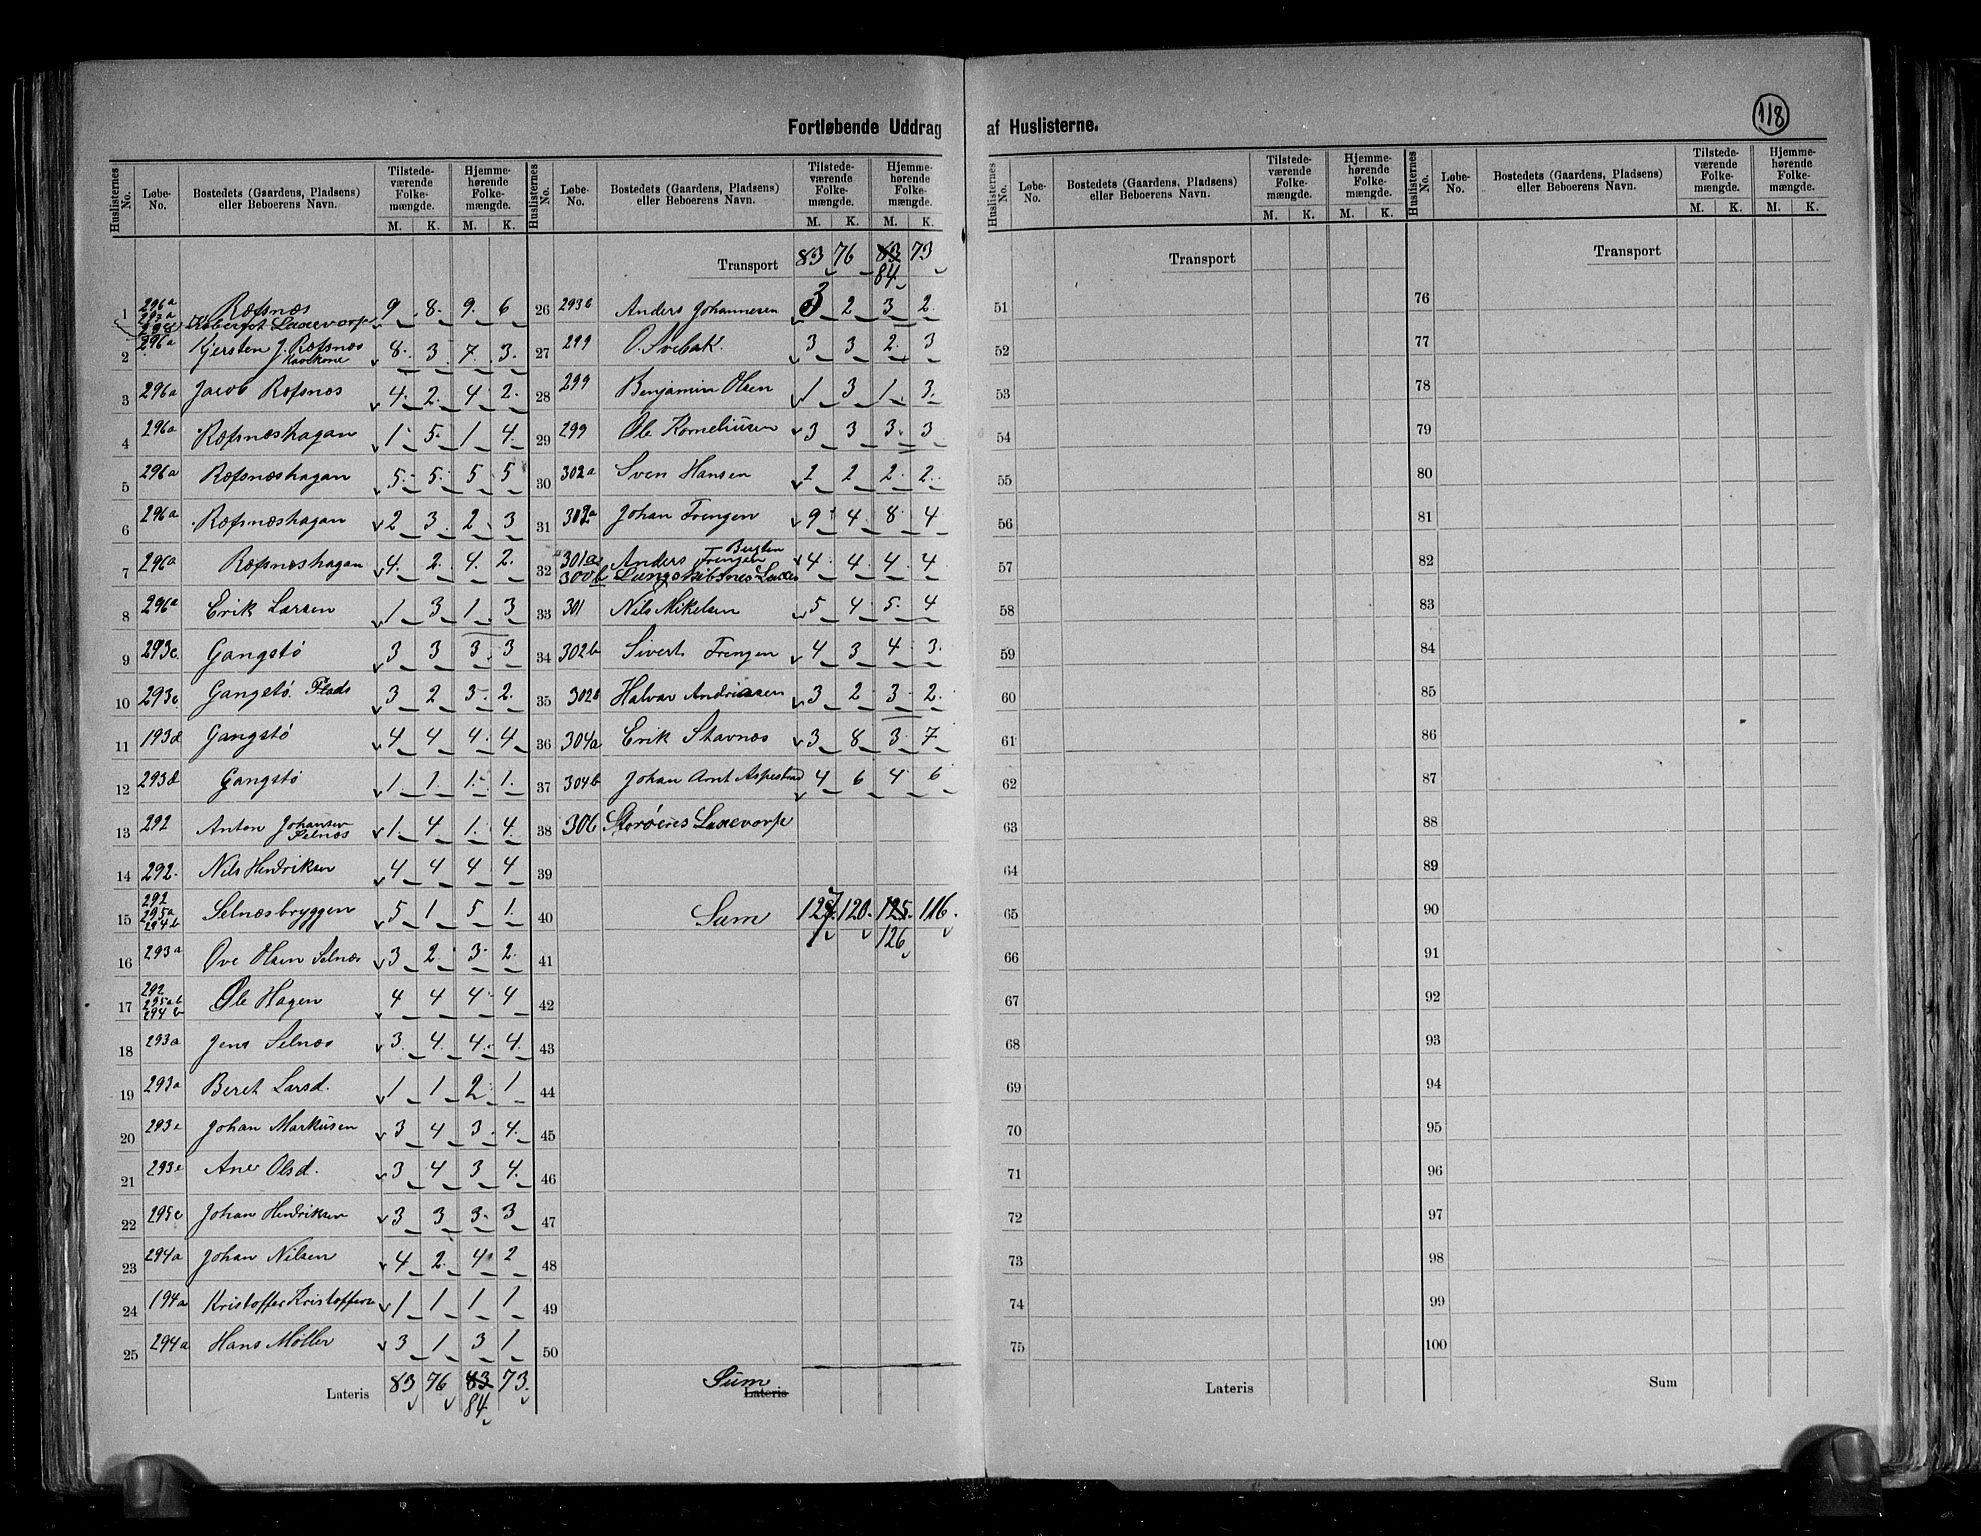 118
Fortløbende Uddrag af Huslisterne.
Huslisternes No. Løbe-No. Bostedets (Gaardens, Pladsens) eller Beboerens Navn. Tilstedeværende Folkemængde. M. K. Hjemmehørende Folkemængde. M. K.
1 296a 297a 298 Ræfsnæs 9 8 9 6
Laxevorp
2 296a Kjersten J. Ræfsnæs Kaarkone 8 3 7 3
3 296a Jacob Ræfsnæs 4 2 4 2
4 296a Ræfsnæshagan 1 5 1 4
5 296a Ræfsnæshagan 5 5 5 5
6 296a Ræfsnæshagan 2 3 2 3
7 296a Ræfsnæshagan 4 2 4 2
8 296a Erik Larsen 1 3 1 3
9 293c Gangstø 3 3 3 3
10 293c Gangstø Plads 3 2 3 2
11 193d Gangstø 4 4 4 4
12 293d Gangstø 1 1 1 1
13 292 Anton Johansen Selnæs 1 4 1 4
14 292 Nils Hendriksen 4 4 4 4
15 292 295a 294b Selnæsbryggen 5 1 5 1
16 293a Ove Olsen Selnæs 3 2 3 2
17 292 295ab 294b Ole Hagen 4 4 4 4
18 293a Jens Selnæs 3 4 4 4
19 293a Beret Larsd. 1 1 2 1
20 293e Johan Markusen 3 4 3 4
21 293e Ane Olsd. 3 4 3 4
22 295c Johan Hendriksen 3 3 3 3
23 294a Johan Nilsen 4 2 4 2
24 194a Kristoffer Kristoffersen 1 1 1 1
25 294a Hans Møller 3 1 3 1
Lateris 83 76 83 73
84
Huslisternes No. Løbe-No. Bostedets (Gaardens, Pladsens) eller Beboerens Navn. Tilstedeværende Folkemængde. M. K. Hjemmehørende Folkemængde. M. K.
Transport 83 76 83 73
84
26 293b Anders Johannesen 3 2 3 2
27 299 O. Svebak 3 3 2 3
28 299 Benjamin Olsen 1 3 1 3
29 299 Ole Korneliusen 3 3 3 3
30 302a Sven Hansen 2 2 2 2
31 302a Johan Frengen 9 4 8 4
32 301a 300b Anders Frengen Bugten 4 4 4 4
Langskibsnes
33 301 Nils Mikelsen 5 4 5 4
34 302b Sivert Frengen 4 3 4 3
35 302b Halvar Andriasen 3 2 3 2
36 304a Erik Stavnæs 3 8 3 7
37 304b Johan Arnt Aspestrand 4 6 4 6
38 306 Storøens Laxevorp
39
40 Sum 127 120 125 116
126
41
42
43
44
45
46
47
48
49
50
Sum
Lateris
Huslisternes No. Løbe-No. Bostedets (Gaardens, Pladsens) eller Beboerens Navn. Tilstedeværende Folkemængde. M. K. Hjemmehørende Folkemængde. M. K.
Transport
51
52
53
54
55
56
57
58
59
60
61
62
63
64
65
66
67
68
69
70
71
72
73
74
75
Lateris
Huslisternes No. Løbe-No. Bostedets (Gaardens, Pladsens) eller Beboerens Navn. Tilstedeværende Folkemængde. M. K. Hjemmehørende Folkemængde. M. K.
Transport
76
77
78
79
80
81
82
83
84
85
86
87
88
89
90
91
92
93
94
95
96
97
98
99
100
Sum